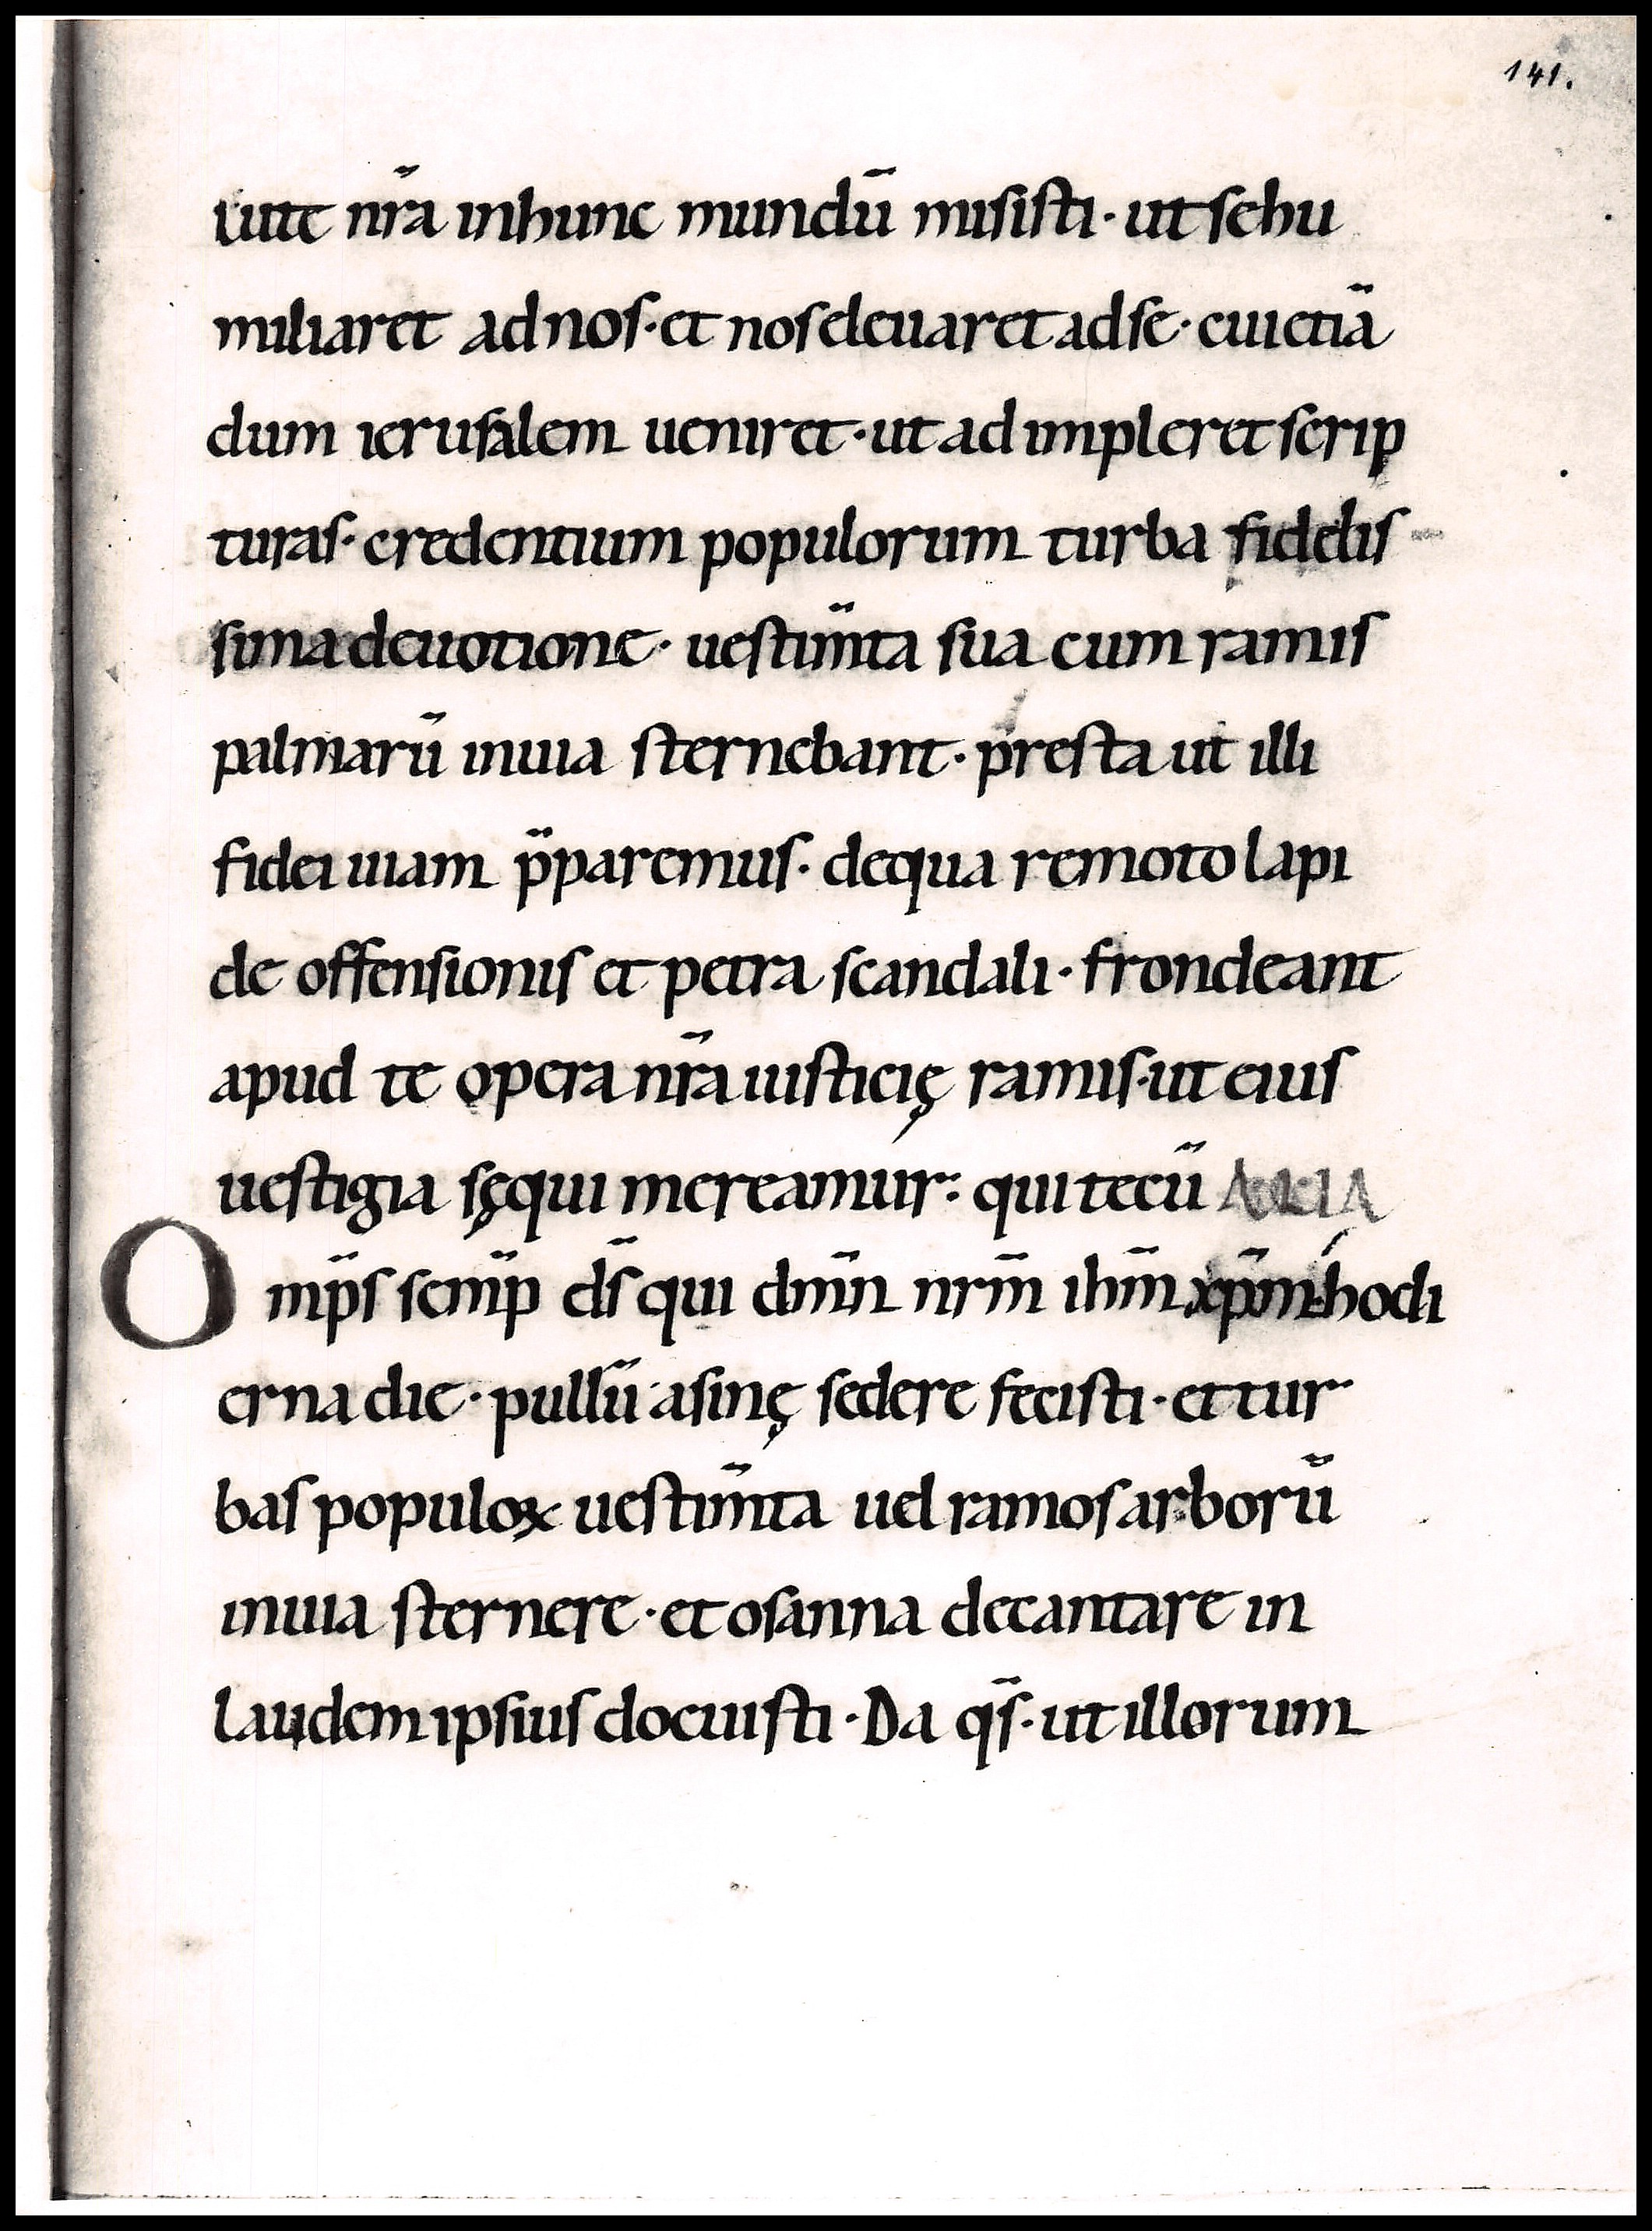 141.
lute nr̄a inhunc mundū misisti · ut sehu
miliaret ad nos · et nos eleuaret adse · cui etiā
dum ierusalem ueniret · ut ad impleret scrip
turas · credentium populorum turba fidelis
sima deuotione · uestim̄ta sua cum ramis
palmarū inuia sternebant · presta ut illi
fidei uiam p̄paremus · dequa remoto lapi
de offensionis et petra scandali · frondeant
apud te opera nr̄a iusticię ramis · ut eius
uestigia sęqui mereamur : qui tecū ALIA
O mp̄s semp̄ ds̄ qui dnm̄ nrm̄ ihm̄ xpm̄ · hodi
erna die · pullū asinę sedere fecisti · et tur
bas populoꝝ uestim̄ta uel ramos arborū
inuia sternere · et osanna decantare in
laudem ipsius docuisti · Da qs̄ · ut illorum